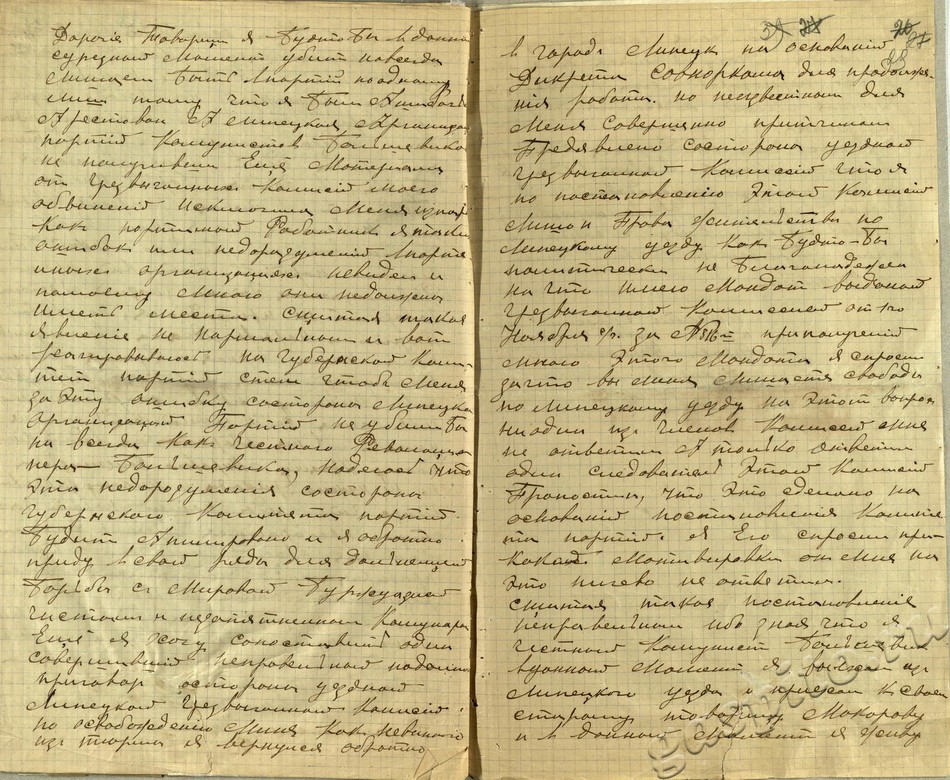 Дорогие Товарищи я Будто Бы в данно
сурезной Момент убит навсегда
Лишаем Быть в партии по одному
тому что я Был
Арестован и Липецкая Организац
партий Комунистов Большевиков
не получивши Ещё Материала
от Чрезвычайной Комисий моего
обвинений Исключила Меня из парт
Какъ партийной Работник я такия
ошибок или недоразумений в парти
организациях невидел и
помоему Мнено они недолжны
Иметь места. Считая такая
явление не нармальным и вот
реагирываюсь на Губернской Коми
тет партий стем чтобы Меня
за Эту ошибку состороны Липецка
организацией Партий не убили Бы
на всегда Какъ Честного Революцио
нера – Большевика, Надеюсь Что
Эта недорозумения состороны
Губернского Комитета партий
Будит Анулировано и я обратно
приду в свои ряды для дальнейшей
Борьбы с Мировой Буржуазией
чистым и незапятненном Комунаром
Ещё я хочу сопоставить один
совершивший неправельно
приговор состороны уездной
Липецкой Чрезвычайной Комисий
по освобождению Меня Как невиного
из тюрьмы я вернулся обратно
27
в город Липецк на оснований
Декрета совноркома для продолже
ния работы. но неизвестным для
Меня совершенно притчинам
Предявлено состороны уездной
чрезвычайной Комиссий что я
по постановлению Этой Комисий
Лишон Права жительства по
Липецкому уезду Как Будто Бы
политически не Благонадежен
на что имею Мандат выданой
чрезвычайной Комисией от 1го
Ноября с/г. за № при получений
мною Этого Мондата я спросил
зачто вы Меня Лишаете свободы
по Липецкому уезду на Этот вопрос
ниодин из членов Комисией мне
не ответил А только ответил
один следователь Этой Комисий
что Это сделано на
оснований постановления Комите
та партий. я Его спросил при
Какой Мотивировки он Мне на
Это ничево не ответил.
Считая такая постановление
неправельным ибо зная что я
честной Комунист Большевик
вданной Момент я выехал из
Липецкого уезда и приехал к своем
старому товарищу Макарову
и в данной Момент я живу